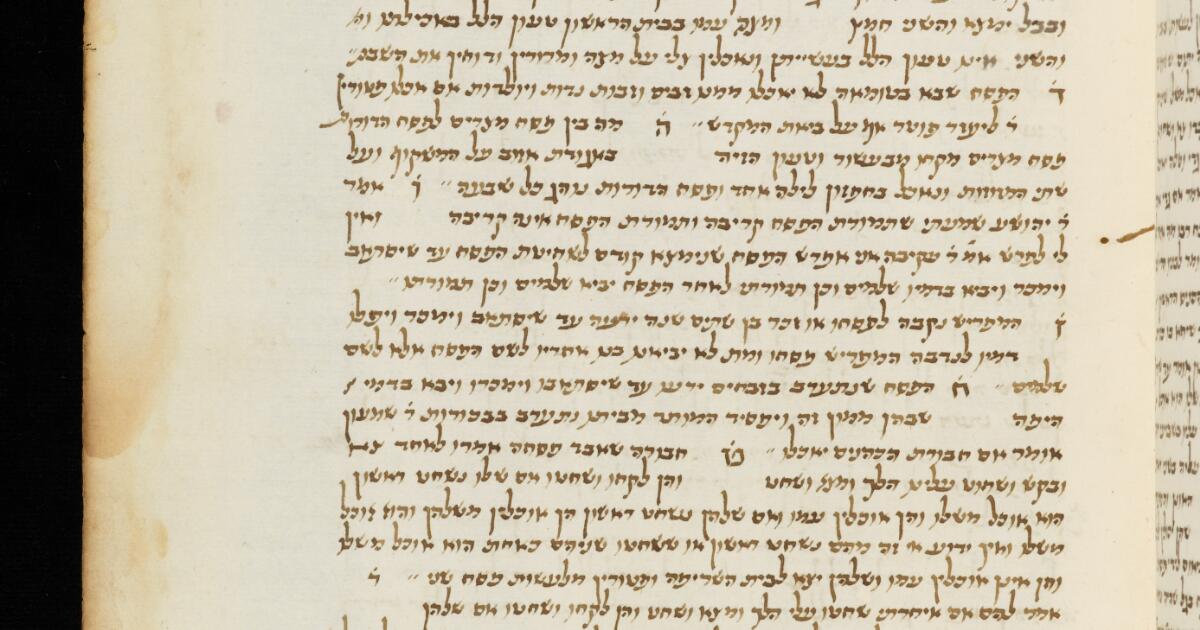 ובבל ימצא והשני חמץ ומצה עמו בבית הראשון טעון הלל באכילתו
והשני אינו טעון הלל בעשייתן ונאכלין צלי על מצה ומרורין ודוחין את השבת
ד הפסח שבא בטומאה לא יאכלו ממנו זבים וזבות נדות ויולדות אם אכלו פטורין
ר ליעזר פוטר אף על ביאת המקדש ה מה בין פסח מצרים לפסח הדורות
פסח מצרים מקחו מבעשור וטעון הזיה באגודת אזוב על המשקוף ועל
שתי המזוזות ונאכל בחפזון לילה אחד ופסח הדורות נוהג כל שבעה ו אמר
ר יהושע שמעתי שתמורת הפסח קריבה ותמורת הפסח אינה קריבה ואין
לי לפרש אמ ר עקיבה אני אפרש הפסח שנימצא קודם לשחיטת הפסח עד שיסתאב
וימכר ויביא בדמיו שלמים וכן תמורתו לאחר הפסח יביא שלמים וכן תמורתו
ז המפריש נקבה לפסחו או זכר בן שתים שנה ירעה עד שיסתאב וימכר ויפלו
דמיו לנדבה המפריש פסחו ומת לא יביאנו בנו אחריו לשם הפסח אלא לשם
שלמים ח הפסח שנתערב בזבחים ירעו עד שיסתאבו וימכרו ויבא בדמי
היפה שבהן ממין זה ויפסיד המותר מביתו נתערב בבכורות ר שמעון
אומר אם חבורת הכהנים יאכלו ט חבורה שאבד פסחה אמרו לאחד צא
ובקש ושחוט עלינו הלך ומצא ושחט והן לקחו ושחטו אם שלו נשחט ראשון
הוא אוכל משלו והן אוכלין עמו ואם שלהן נשחט ראשון הן אוכלין משלהן והוא אוכל
משלו ואין ידוע אי זה מהם נשחט ראשון או ששחטו שניהם כאחת הוא אוכל משלו
והן אינן אוכלין עמו ושלהן יצא לבית השריפה ופטורין מלעשות פסח שני
אמר להם אם איחרתי שחטו עלי הלך ומצא ושחט והן לקחו ושחטו אם שלהן